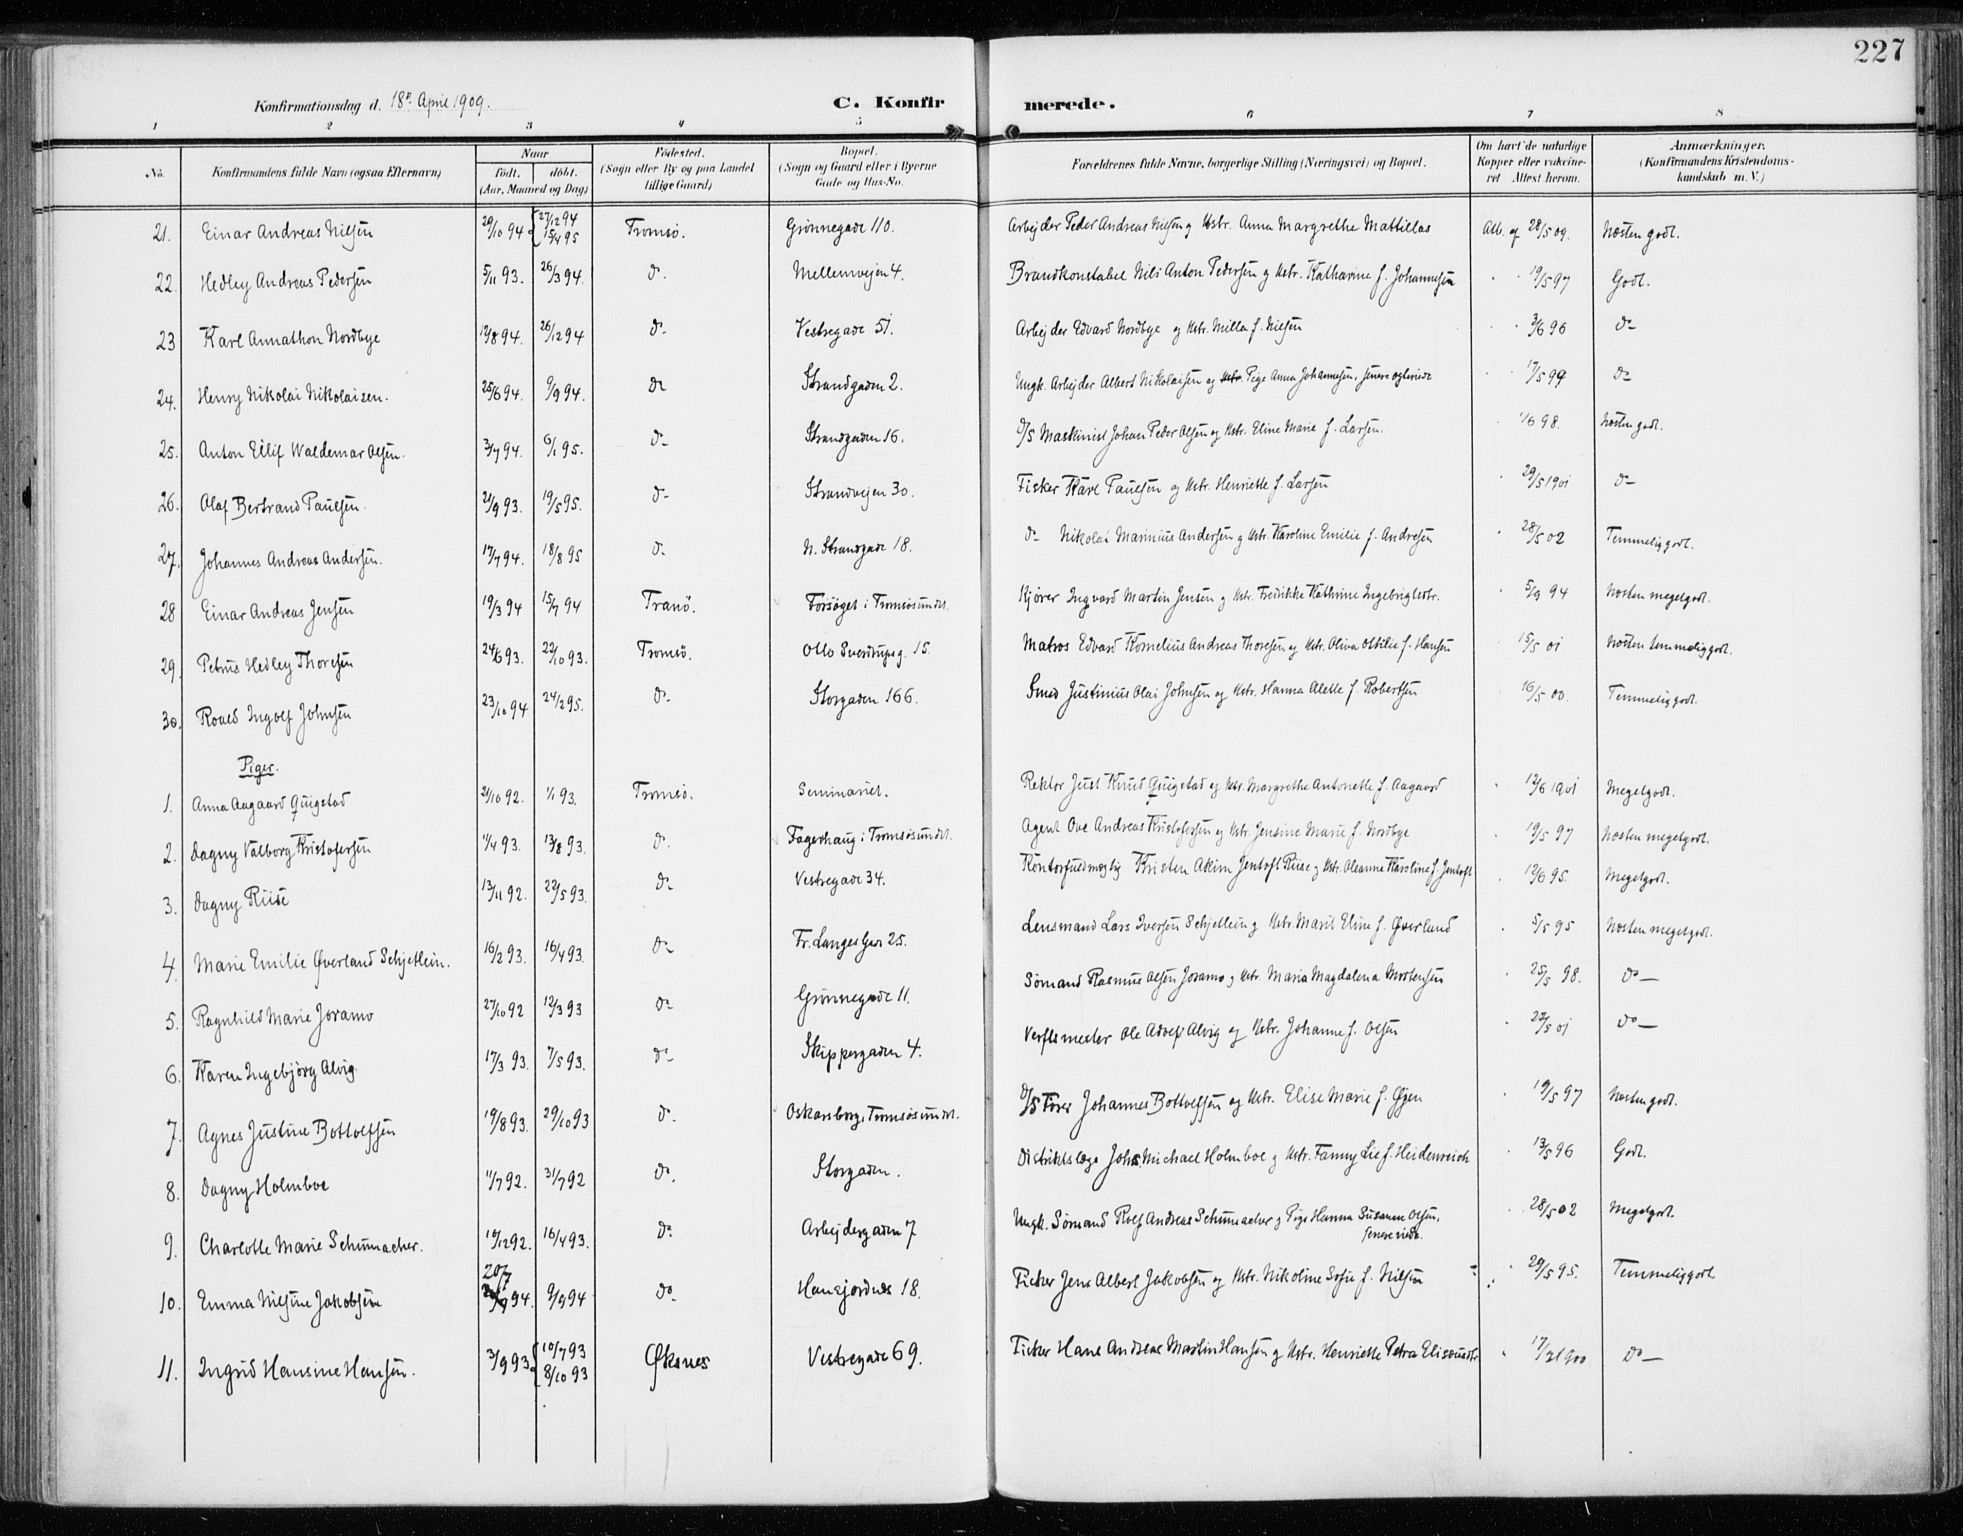 227
Konfirmationsdag d. 18n April 1909.
C. Konfir merede.
1 2 3 4 5 6 7 8
No. Konfirmandens fulde Navn (ogsaa Efternavn) Naar født, døbt. (Aar, Maaned og Dag) Fødested. (Sogn eller By og paa Landet tillige Gaard) Bopæl. (Sogn og Gaard eller i Byerne Gade og Hus-No. Forældrenes fulde Navne, borgerlige Stilling (Næringsvei) og Bopæl. Om havt de naturlige Kopper eller vakcineret Attest herom. Anmærkninger. (Konfirmandens Kristendomskundskab m. V.)
21. Einar Andreas Nilsen 29/10 94 { 27/12 94 15/4 95 Tromsö. Grønnegade 110. Arbejder Peder Andreas Nilsen og Hstr. Anna Margrethe Mattillas Att. af 28/5 09. Næsten godt.
22. Hedley Andreas Pedersen 5/11 93. 26/3 94. do. Mellemvejen 4. Brandkonstabel Nils Anton Pedersen og Hstr. Katharine f. Johannesen " " 19/5 97 Godt.
23 Karl Annathon Nordbye 12/8 94. 26/12 94 do. Vestregade 51. Arbejder Edvard Nordbye og Hstr. Milla f. Nielsen " " 3/6 96 do
24. Henry Nikolai Nikolaisen. 25/6 94. 9/9 94. do Strandgaden 2. Ungk. Arbejder Albert Nikolaisen og Hstr. Pige Anna Johannesen, senere ægteviede " " 17/5 99 do
25. Anton Eilif Waldemar Olsen. 3/7 94. 6/1 95. do Strandgaden 16. D/S Maskinist Johan Peder Olsen og Hstr. Eline Marie f. Larsen. " 1/6 98. Næsten godt.
26. Olaf Bertrand Paulsen. 21/9 93. 19/5 95. do Strandvejen 30. Fisker Karl Paulsen og Hstr. Henriette f. Larsen " 29/5 1901 do
27. Johannes Andreas Andersen. 17/7 94. 18/8 95 do. N. Strandgade 18. do Nikolai Marinius Andersen og Hstr. Karoline Emilie f. Andresen " 28/5 02 Temmelig godt.
28 Einar Andreas Jensen 19/3 94 15/7 94 Tranö. Forsøget i Tromsösundet. Kjører Ingvard Martin Jensen og Hstr. Fredrikke Kathrine Ingebrigtsdtr. " 5/9 94 Næsten meget godt.
29. Petrus Hedley Thoresen 24/6 93. 22/10 93. Tromsö. Otto Sverdrupsg. 15. Matros Edvard Kornelius Andreas Thoresen og Hstr. Oliva Ottilie f. Hansen " 15/5 01 Næsten temmelig godt.
30. Roald Ingolf Johnsen 23/10 94 24/2 95. do. Storgaden 166. Smed Justinius Olai Johnsen og Hstr. Hanna Alette f. Robertsen " 16/5 00. Temmelig godt.
Piger.
1. Anna Aagaard Qvigstad 21/10 92. 1/1 93. Tromsö. Seminariet. Rektor Just Knud Qvigstad og Hstr. Margrethe Antonette f. Aagaard " 12/6 1901 Megetgodt.
2. Dagny Valborg Kristofersen 11/4 93. 13/8 93. do. Fagerhaug i Tromsösundet. Agent Ove Andreas Kristofersen og Hstr. Jensine Marie f. Nordbye " 19/5 97 Næsten megetgodt.
3. Dagny Riise 13/11 92. 22/5 93. do Vestregade 34. Kontorfuldmægtig Kristen Akim Jentoft Riise og Hstr. Oleanne Karoline f. Jentoft " 12/6 95. Megetgodt.
4. Marie Emilie Øverland Schjetlein. 16/2 93. 16/4 93. do Fr. Langes Gade 25. Lensmand Lars Iversen Schjetlein og Hstr. Marit Eline f. Øverland " 5/5 95 Næsten megetgodt.
5. Ragnhild Marie Joramo 27/10 92 12/3 93 do Grønnegade 11. Sømand Rasmus Olsen Joramo og Hstr. Maria Magdalena Mortensen " 25/5 98. do
6. Karen Ingebjörg Alvig. 17/3 93. 7/5 93. do Skippergaden 4. Verftsmester Ole Adolf Alvig og Hstr. Johanne f. Olsen " 22/5 01 do
7. Agnes Justine Bottolfsen 19/8 93. 29/10 93 do. Oskarsborg, Tromsösundet. D/S Fører Johannes Bottolfsen og Hstr. Elise Marie f. Øgen " 19/5 97 Næsten godt.
8. Dagny Holmboe 11/7 92. 31/7 92 do. Storgaden. Distriktslæge Johs Michael Holmboe og Hstr. Fanny Lie f. Heidenreich " 13/5 96 Godt.
9. Charlotte Marie Schumacher. 19/12 92. 16/4 93. do Arbejdergaden 7 Ungk. Sømand Rolf Andreas Schumacher og Pige Hanna Susanne Olsen, senere viede. " 28/5 02 Megetgodt.
10. Emma Nilsine Jakobsen 20/7 94. 9/9 94 do. Hansjordnes 18. Fisker Jens Albert Jakobsen og Hstr. Nikoline Sofie f. Nilsen " 29/5 95. Temmelig godt
11. Ingrid Hansine Hansen. 3/9 93 { 10/7 93 8/10 93 Øksnes Vestregade 69. Fisker Hans Andreas Martin Hansen og Hstr. Henriette Petra Elisæusdtr. " do